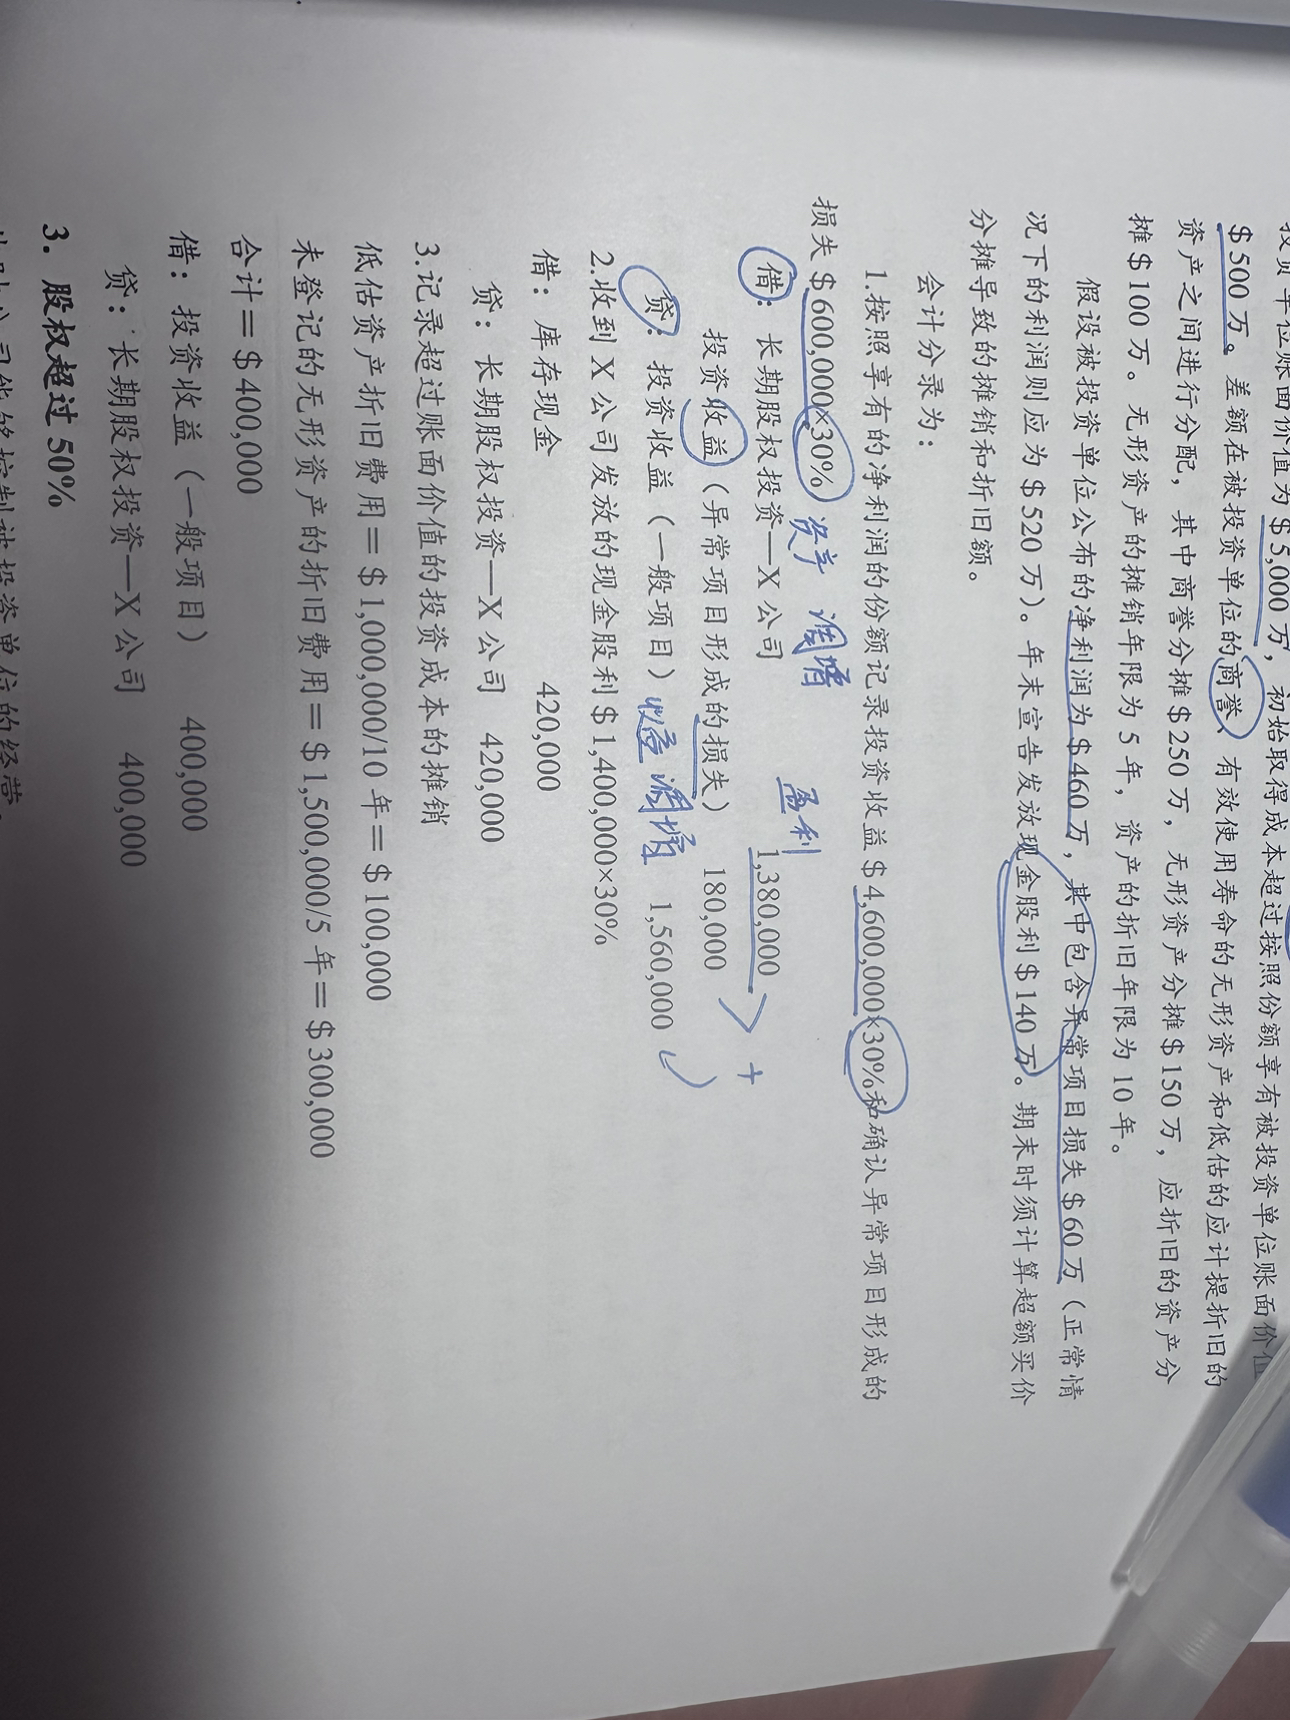 投资单位账面价值为$5,000万，初始取得成本超过按照份额享有被投资单位账面价值
$500万。差额在被投资单位的商誉、有效使用寿命的无形资产和低估的应计提折旧的
资产之间进行分配，其中商誉分摊$250万，无形资产分摊$150万，应折旧的资产分
摊$100万。无形资产的摊销年限为5年，资产的折旧年限为10年。
假设被投资单位公布的净利润为$460万，其中包含异常项目损失$60万（正常情
况下的利润则应为$520万）。年末宣告发放现金股利$140万。期末时须计算超额买价
分摊导致的摊销和折旧额。
会计分录为：
1.按照享有的净利润的份额记录投资收益$4,600,000×30%和确认异常项目形成的
损失$600,000×30%
资产 调增 盈利
借：长期股权投资—X公司 1,380,000
投资收益（异常项目形成的损失） 180,000 +
贷：投资收益（一般项目） 收益 调增 1,560,000
2.收到X公司发放的现金股利$1,400,000×30%
借：库存现金 420,000
贷：长期股权投资—X公司 420,000
3.记录超过账面价值的投资成本的摊销
低估资产折旧费用＝$1,000,000/10年＝$100,000
未登记的无形资产的折旧费用＝$1,500,000/5年＝$300,000
合计＝$400,000
借：投资收益（一般项目） 400,000
贷：长期股权投资—X公司 400,000
3. 股权超过50%